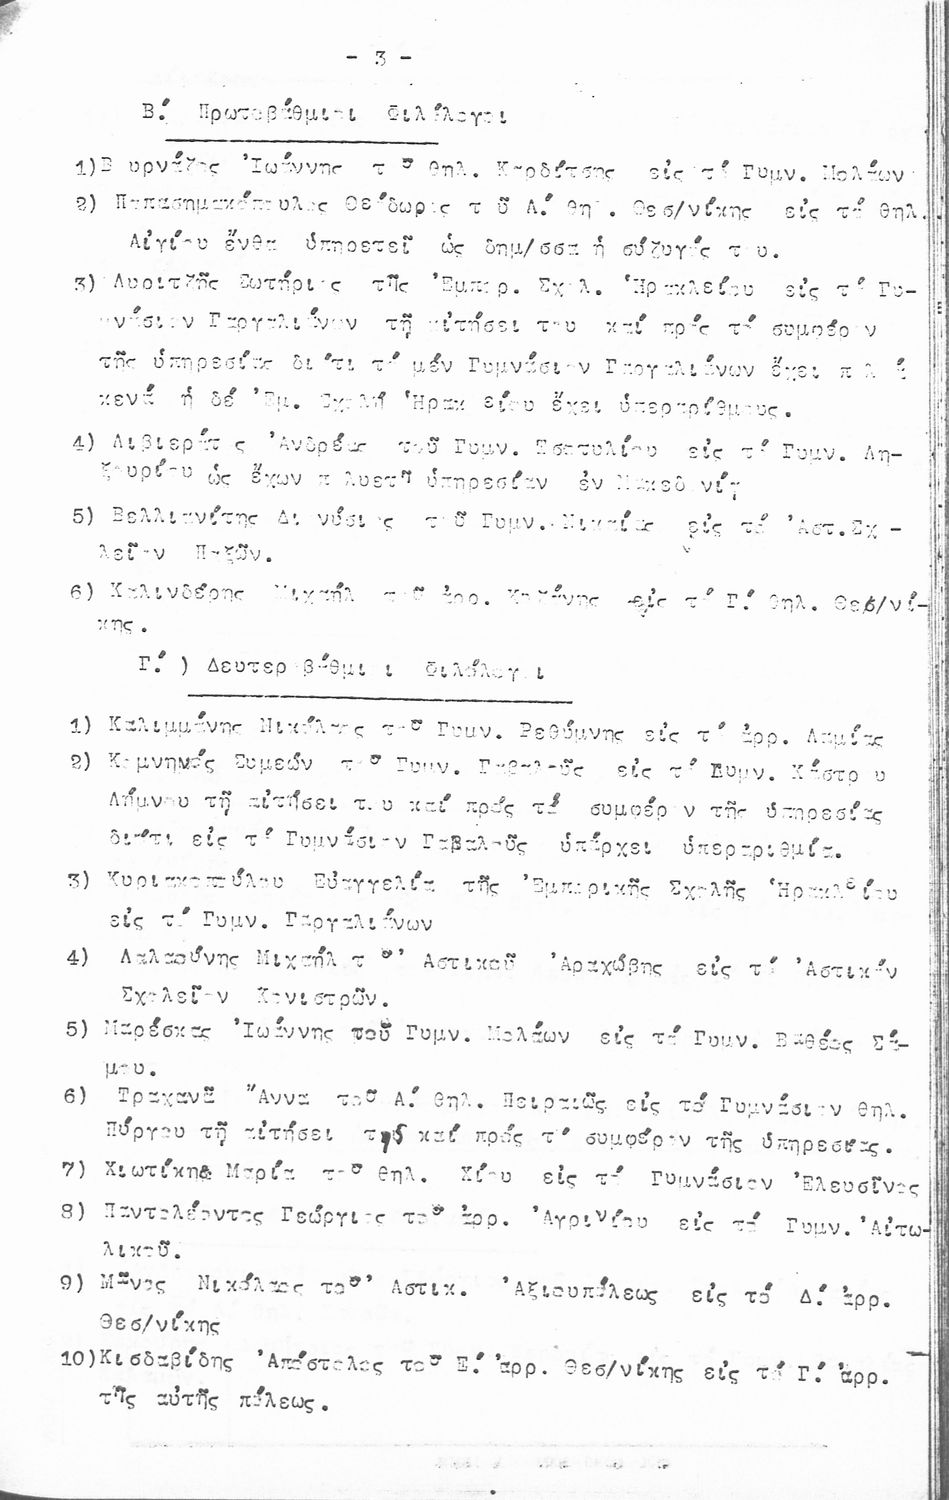 - 3 -
Β.΄ Πρωτοβάθμιοι Φιλόλογοι
1) Βουρνάζος Ἰωάννης τοῦ θηλ. Καρδίτσης εἰς τό Γυμν. Μολάων
2) Παπασημακόπουλος Θεόδωρος τοῦ Α.΄ θηλ. Θεσ/νίκης εἰς τό θηλ.
Αἰγίου ἔνθα ὑπηρετεῖ ὡς δημ/σσα ἡ σύζυγός του.
3) Λυριτζῆς Σωτήριος τῆς Ἐμπορ. Σχολ. Ἡρακλείου εἰς τό Γυ-
μνάσιον Γαργαλιάνων τῇ αἰτήσει του καί πρός τό συμφέρον
τῆς ὑπηρεσίας διότι τό μέν Γυμνάσιον Γαργαλιάνων ἔχει πολλά
κενά ἡ δέ Ἐμ. Σχολή Ἡρακλείου ἔχει ὑπεραρίθμους.
4) Λιβιεράτος Ἀνδρέας τοῦ Γυμν. Τσοτυλίου εἰς τό Γυμν. Λη-
ξουρίου ὡς ἔχων πολυετῆ ὑπηρεσίαν ἐν Μακεδονίᾳ
5) Βελλιανίτης Διονύσιος τοῦ Γυμν. Νικαίας εἰς τό Ἀστ.Σχο-
λεῖον Παξῶν.
6) Καλινδέρης Μιχαήλ τοῦ ἀρρ. Κοζάνης εἰς τό Γ.΄ θηλ. Θεσ/νί-
κης.
Γ.΄) Δευτεροβάθμιοι Φιλόλογοι
1) Καλιμμάνης Νικόλαος τοῦ Γυμν. Ρεθύμνης εἰς τό ἀρρ. Λαμίας
2) Κομνηνός Συμεών τοῦ Γυμν. Γαβαλοῦς εἰς τό Γυμν. Κάστρου
Λήμνου τῇ αἰτήσει του καί πρός τό συμφέρον τῆς ὑπηρεσίας
διότι εἰς τό Γυμνάσιον Γαβαλοῦς ὑπάρχει ὑπεραριθμία.
3) Κυριακοπούλου Εὐαγγελία τῆς Ἐμπορικῆς Σχολῆς Ἡρακλείου
εἰς τό Γυμν. Γαργαλιάνων
4) Λαλαούνης Μιχαήλ τοῦ Ἀστικοῦ Ἀραχώβης εἰς τό Ἀστικόν
Σχολεῖον Κονιστρῶν.
5) Μαρέσκας Ἰωάννης τοῦ Γυμν. Μολάων εἰς τό Γυμν. Βαθέος Σά-
μου.
6) Τραχανᾶ Ἄννα τοῦ Α.΄ θηλ. Πειραιῶς εἰς τό Γυμνάσιον θηλ.
Πύργου τῇ αἰτήσει της καί πρός τό συμφέρον τῆς ὑπηρεσίας.
7) Χιωτίκη Μαρία τοῦ θηλ. Χίου εἰς τό Γυμνάσιον Ἐλευσῖνος
8) Παντολέοντος Γεώργιος τοῦ ἀρρ. Ἀγρινίου εἰς τό Γυμν. Αἰτω-
λικοῦ.
9) Μᾶνος Νικόλαος τοῦ Ἀστικ. Ἀξιουπόλεως εἰς τό Δ.΄ ἀρρ.
Θεσ/νίκης
10) Κισδαβίδης Ἀπόστολος τοῦ Ε.΄ ἀρρ. Θεσ/νίκης εἰς τό Γ.΄ ἀρρ.
τῆς αὐτῆς πόλεως.